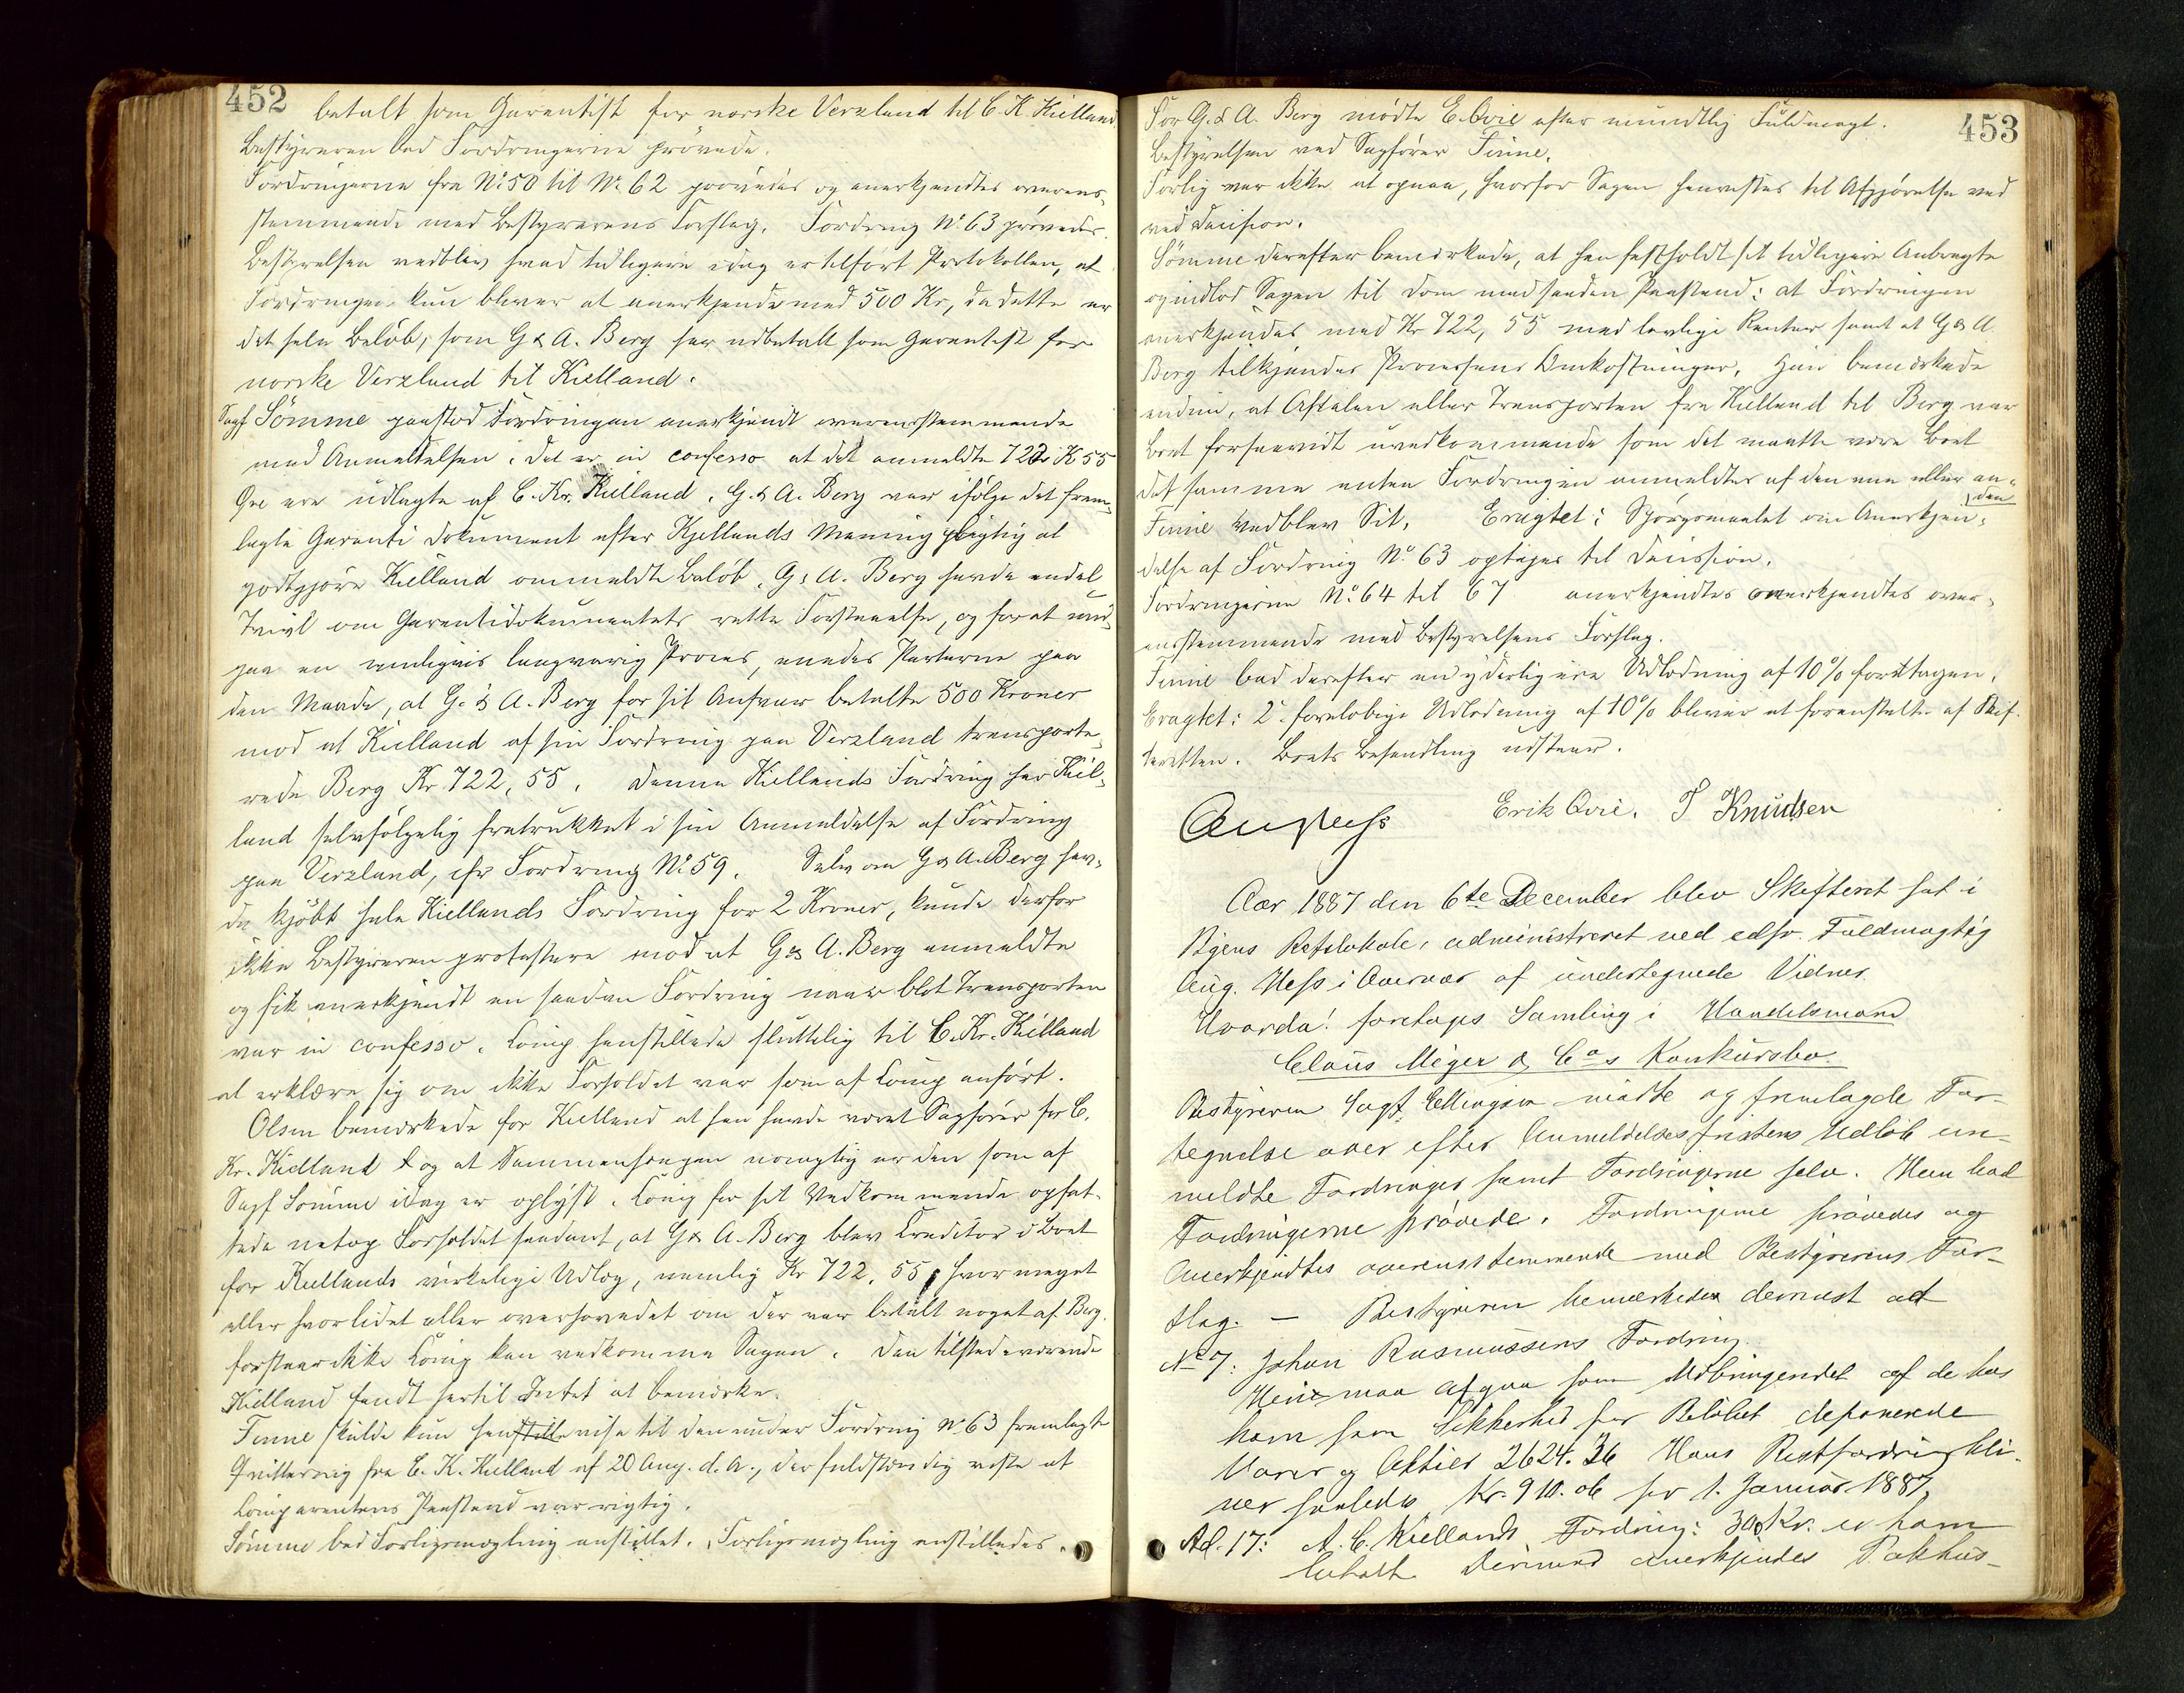 452
betalt som Garantist for norske Verxland til C. K. Kielland.
Bestyreren bad Fordringerne prövede.
Fordringerne fra No 50 til No 62 prövedes og anerkjendtes overens-
stemmende med Bestyrerens Forslag. Fordring No 63 prövedes.
Bestyrelsen vedblev hvad tidligere idag er tilfört Protokollen, at
Fordringen kun bliver at anerkjende med 500 Kr, da dette er
det hele Belöb, som G & A. Berg har udbetalt som Garantist for
norske Verxland til Kielland.
Sagf Sömme paastod Fordringen anerkjendt overensstemmende
med Anmeldelsen. Det er in confesso at det anmeldte 722 K 55
Öre ere udlagte af C. Kr. Kielland. G. & A. Berg var ifölge det frem-
lagte Garanti Dokument efter Kjellands Mening pligtig at
godtgjöre Kielland ommeldte Belöb. G & A. Berg havde endel
Tvivl om Garantidokumentets rette Forstaaelse, og for at und-
gaa en muligvis langvarig Proces, enedes Parterne paa
den Maade, at G. & A. Berg for sit Ansvar betalte 500 Kroner
mod at Kielland af sin Fordring paa Verxland transporte-
rede Berg Kr. 722,55. Denne Kiellands Fordring har Kiel-
land selvfölgelig fratrukket i sin Anmeldelse af Fordring
paa Verxland, cfr Fordring No 59. Selv om G & A. Berg hav-
de kjöbt hele Kiellands Fordring for 2 Kroner, kunde derfor
ikke Bestyreren protestere mod at G & A. Berg anmeldte
og fik anerkjendt en saadan Fordring naar blot Transporten
var in confesso. Comp henstillede sluttelig til C. Kr. Kielland
at erklære sig om ikke Forholdet var som af Comp anfört.
Olsen bemærkede for Kielland at han havde været Sagförer for C.
Kr. Kielland og at Sammenhængen nöiagtig er den som af
Sagf Sömme idag er oplyst. Comp for sit Vedkommende opfat-
tede netop Forholdet saadant, at G & A. Berg blev Creditor i Boet
for Kiellands virkelige Udlæg, nemlig Kr 722,55, hvor meget
eller hvor lidet eller overhovedet om der var betalt noget af Berg
forstaar ikke Comp kan vedkomme Sagen. Den tilstedeværende
Kielland fandt hertil Intet at bemærke.
Finne skulde kun henstille vise til den under Fordring No 63 fremlagte
Qvittering fra C. K. Kielland af 20 Aug. d. A., der fuldstændig viste at
Comparentens Paastand var rigtig.
Sömme bad Forligsmægling anstillet. Forligsmægling anstilledes.
453
For G. & A. Berg mödte E. Qvie efter mundtlig Fuldmagt.
Bestyrelsen ved Sagförer Finne.
Forlig var ikke at opnaa, hvorfor Sagen henvistes til Afgjörelse ved
ved Decision.
Sömme derefter bemærkede, at han fastholdt sit tidligere Anbragte
og indlod Sagen til Dom med saadan Paastand: at Fordringen
anerkjendes med Kr 722,55 med lovlige Renter samt at G & A
Berg tilkjendes Processens Omkostninger. Han bemærkede
endnu, at Aftalen eller Transporten fra Kielland til Berg var
Boet forsaavidt uvedkommende som det maatte være Boet
det samme enten Fordringen anmeldtes af den ene eller an-
den
Finne vedblev Sit. Eragtet: Spörgsmaalet om Anerkjen-
delse af Fordring No 63 optages til Decission.
Fordringerne No 64 til 67 anerkjendtes anerkjendtes over-
ensstemmende med Bestyrelsens Forslag.
Finne bad derefter en yderligere Udlodning af 10% foretagen.
Eragtet: 2den forelöbige Udlodning af 10% bliver at foranstalte af Skif-
teretten. Boets Behandling udstaar.
Aug Hess Erik Qvie. T Knudsen
Aar 1887 den 6te December blev Skifteret sat i
Byens Retslokale, administreret ved edsv. Fuldmægtig
Aug. Hess i Overvær af undertegnede Vidner.
Hvorda! foretoges Samling i Handelsmand
Claus Meyer & Cos Konkursbo.
Bestyreren Sagf. Ellingsen mödte og fremlagde For-
tegnelse over efter Anmeldelsesfristens Udlöb an-
meldte Fordringer samt Fordringerne selv. Han bad
Fordringerne prövede. Fordringerne prövedes og
Anerkjendtes overensstemmende med Bestyrerens For-
slag. — Bestyreren bemærkede dernæst ad
No 7: Johan Rasmussens Fordring.
Heri maa afgaa som Udbringendet af de hos
ham som Sikkerhed for Belöbet deponerede
Varer og Aktier 2624.36 Hans Restfordring bli-
ver saaledes Kr. 910.06 pr 1. Januar 1887.
Ad. 17: A. C. Kiellands Fordring: 300 Kr. er ham
betalt. Derimod anerkjendes Pakhus-